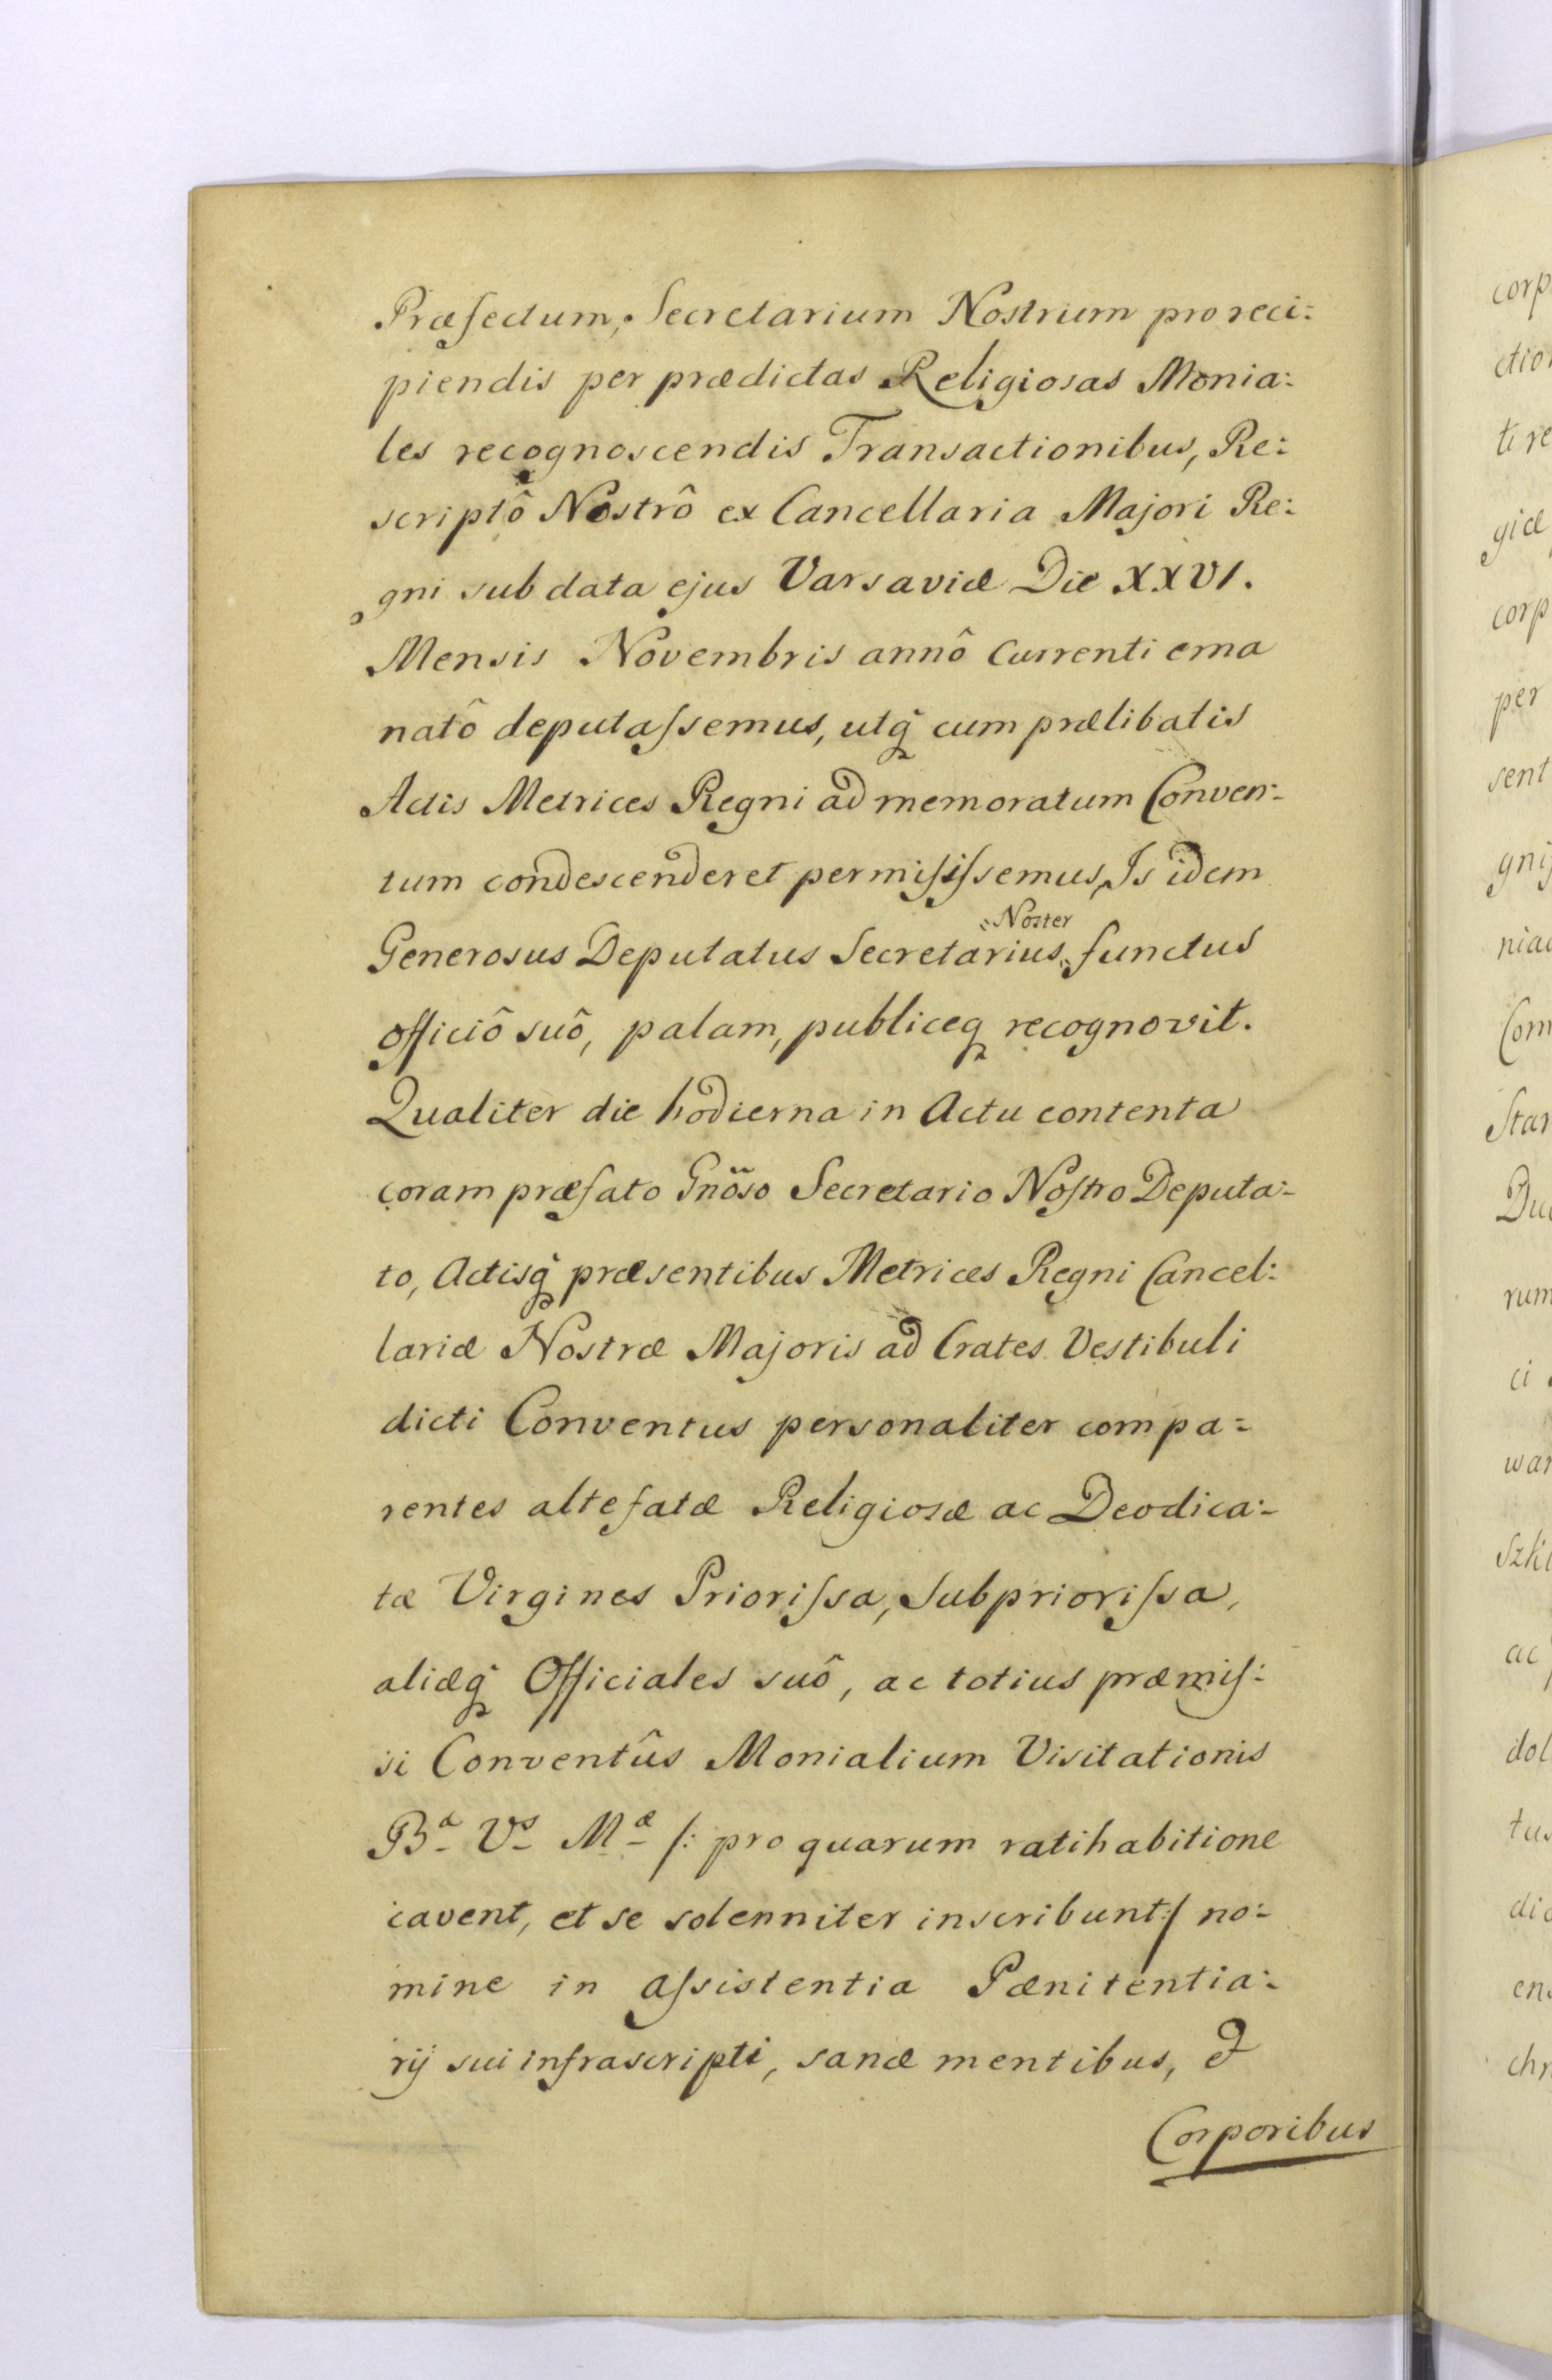 Præfectum, Secretarium Nostrum pro reci:
piendis per prædictas Religiosas Monia:
les recognoscendis Transactionibus, Re:
scriptô Nostrô ex Cancellaria Majori Re:
gni sub data ejus Varsaviæ Die XXVI.
Mensis Novembris annô Currenti ema
natô deputaſsemus, utq̃ cum prælibatis
Actis Metrices Regni ad memoratum Conven:
tum condescenderet permiſiſsemus, Is idem
Noster
Generosus Deputatus Secretarius functus
officiô suô, palam, publiceq recognovit.
Qualiter die hodierna in Actu contenta
coram præfato Gnõso Secretario Noſtro Deputa:
to, Actisq̃ præsentibus Metrices Regni Cancel:
lariæ Nostræ Majoris ad Crates Vestibuli
dicti Conventus personaliter compa:
rentes altefatæ Religiosæ ac Deodica:
tæ Virgines Prioriſsa, Subprioriſsa,
aliæq̃ Officiales suô, ac totius præmiſ:
si Conventûs Monialium Visitationis
Bᵃ Vˢ Mᵃᵉ /: pro quarum ratihabitione
cavent, et se solenniter inscribunt :/ no:
mine in aſsistentia Pænitentia:
rij sui infrascripti, sanæ mentibus, &
Corporibus
corp
ctio
ti re
giæ
corp
per
sent
gniſ
niac
Com
Star
Du
rum
ci
war
Szk
ac
dol
tus
dic
en
chr